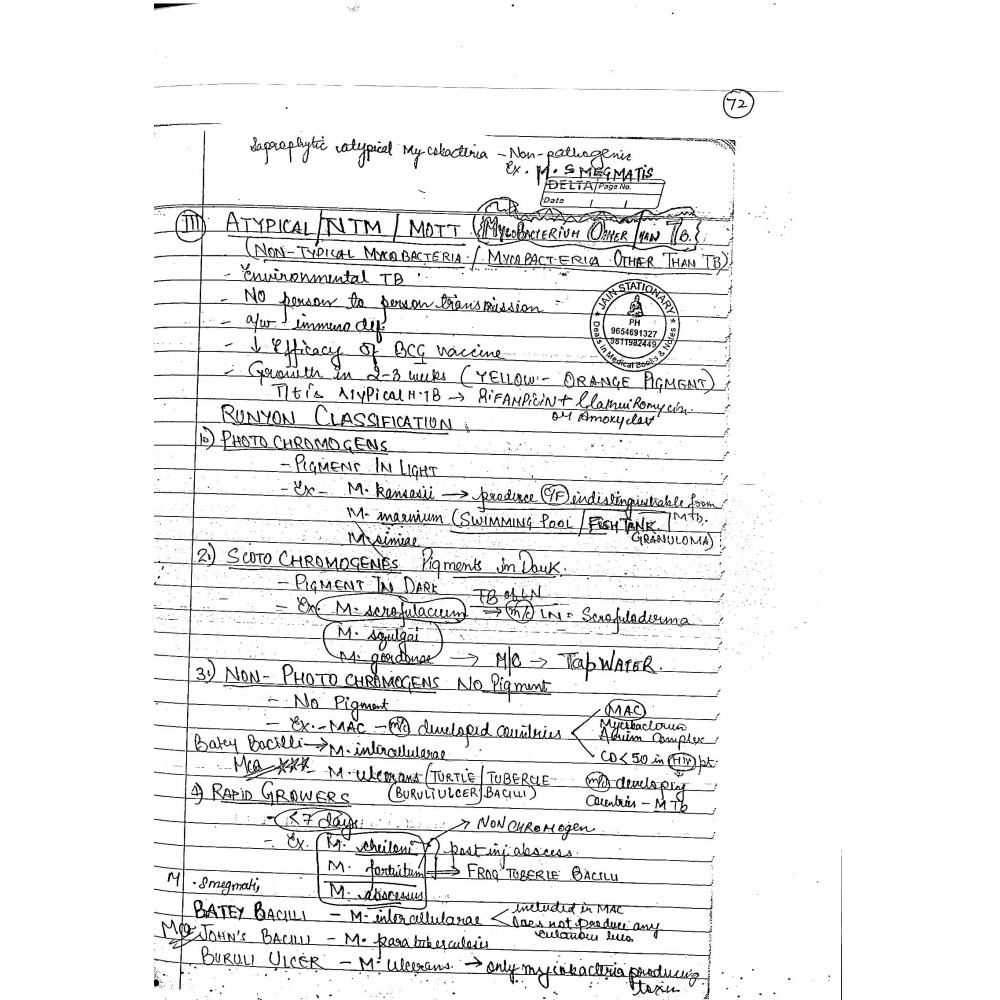 72
Saprophytic atypical Mycobacteria - Non-pathogenic
Ex. M. SMEGMATIS
DELTA Page No.
Date
III ATYPICAL/NTM / MOTT {MYCOBACTERIUM OTHER THAN TB.}
(NON-TYPICAL MYCOBACTERIA / MYCOBACTERIA OTHER THAN TB)
- Environmental TB
- NO person to person transmission
- a/w immuno def.
- ↓ Efficacy of BCG vaccine
- Growth in 2-3 weeks (YELLOW - ORANGE PIGMENT)
Atypical → RIFAMPICIN +
or Amoxyclav
JAIN STATIONARY
PH
9654691327
9811982449
Deals in Medical Books & Notes
RUNYON CLASSIFICATION
1.) PHOTO CHROMOGENS
- PIGMENT IN LIGHT
- Ex - M. kansasii → produce C/F indistinguishable from
Mtb.
M. marnium (SWIMMING POOL / FISH TANK
GRANULOMA)
M. simiae
2.) SCOTO CHROMOGENES Pigments in Dark.
- PIGMENT IN DARK
TB of LN
- Ex. M. scrofulaceum → m/c LN = Scrofuloderma
M. szulgai
M. gordonae → M/C → Tap WATER.
3.) NON - PHOTO CHROMOGENS NO Pigment
- No Pigment
- Ex. - MAC - m/c developed countries
MAC
Mycobacterium
Avium Complex
CD < 50 in HIV pt
Batey Bacilli → M. intercellularae
Mcq *** - M. ulcerans (TURTLE / TUBERCLE
(BURULI ULCER) BACILLI)
m/c developing
Countries - MTb
4) RAPID GROWERS
- < 7 days
→ NON CHROMOGEN
- Ex. M. cheiloni post inj abscess
M. fortuitum → FROG TUBERLE BACILLI
M. abscessus
M. Smegmatis
BATEY BACILLI - M. intercellularae
included in MAC
Does not produce any
Mcq JOHN'S BACILLI - M. paratuberculosis
BURULI ULCER - M. ulcerans → only mycobacteria producing
toxin